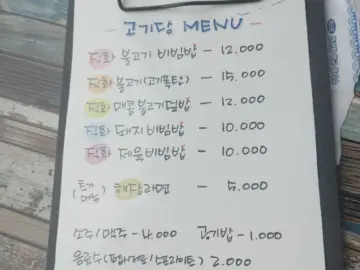 - 고기당 MENU -
직화 불고기 비빔밥 - 12.000
직화 불고기(고기폭탄) - 15.000
직화 매콤불고기덮밥 - 12.000
직화 돼지 비빔밥 - 10.000
직화 제육 비빔밥 - 10.000
해장라면 - 5.000
소주/맥주 - 4.000 공기밥 - 1.000
음료수(펩시제로/스프라이트) 2.000